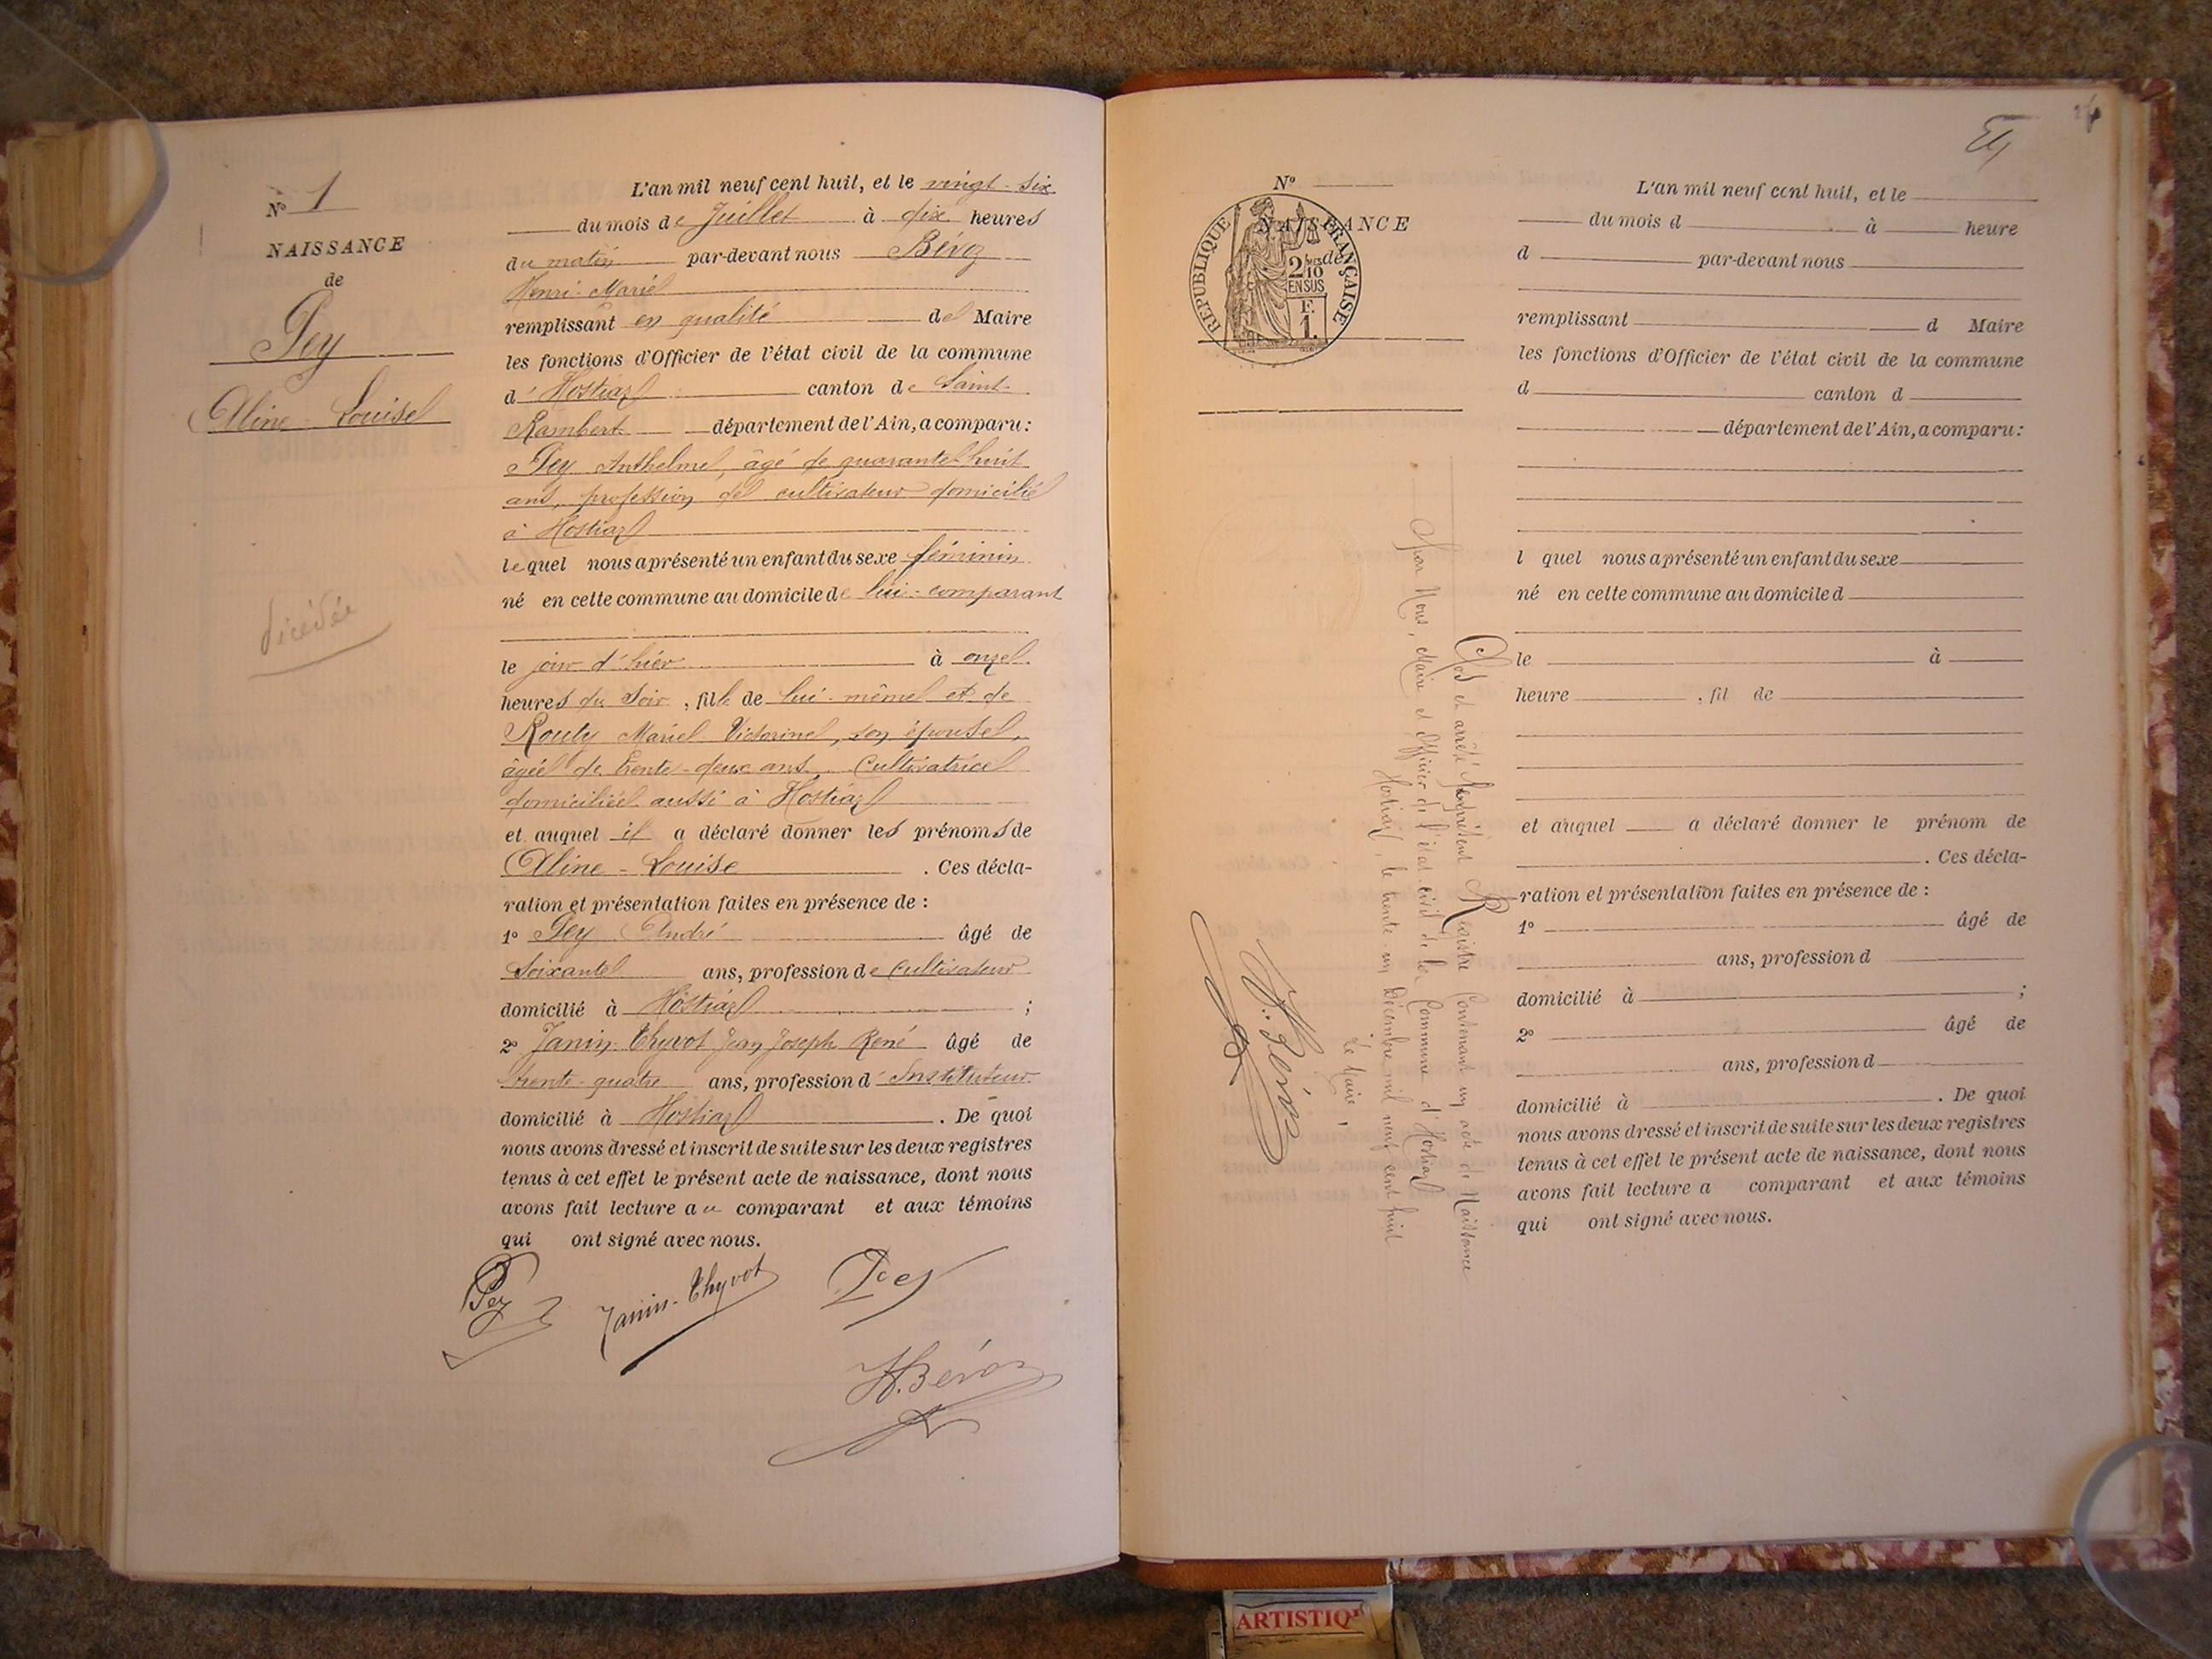 Nº 1
NAISSANCE
de
Pey
Aline-Louise
décédée
L'an mil neuf cent huit, et le vingt-six
du mois de Juillet à dix heures
du matin par-devant nous Béroz
Henri-Marie
remplissant en qualité de Maire
les fonctions d'Officier de l'état civil de la commune
d'Hostiaz canton de Saint-
Rambert département de l'Ain, a comparu :
Pey Anthelme, âgé de quarante huit
ans, profession de cultivateur domicilié
à Hostiaz
lequel nous a présenté un enfant du sexe féminin
né en cette commune au domicile de lui-comparant
le jour d'hier à onze
heures du soir, fille de lui-même et de
Rouly Marie Victorine, son épouse,
âgée de trente-deux ans, Cultivatrice
domiciliée aussi à Hostiaz
et auquel il a déclaré donner les prénoms de
Aline-Louise. Ces décla-
ration et présentation faites en présence de :
1º Pey André âgé de
soixante ans, profession de cultivateur
domicilié à Hostiaz ;
2º Janin-Thyvot Jean Joseph René âgé de
trente-quatre ans, profession d'Instituteur
domicilié à Hostiaz. De quoi
nous avons dressé et inscrit de suite sur les deux registres
tenus à cet effet le présent acte de naissance, dont nous
avons fait lecture au comparant et aux témoins
qui ont signé avec nous.
Pey Janin-Thyvot Pey
H. Béroz
Nº
NAISSANCE
de
REPUBLIQUE FRANÇAISE
2/10 EN SUS
F. 1.
L'an mil neuf cent huit, et le
du mois d à heure
d par-devant nous
remplissant d Maire
les fonctions d'Officier de l'état civil de la commune
d canton d
département de l'Ain, a comparu :
l quel nous a présenté un enfant du sexe
né en cette commune au domicile d
le à
heure , fil de
et auquel a déclaré donner le prénom de
. Ces décla-
ration et présentation faites en présence de :
1º âgé de
ans, profession d
domicilié à ;
2º âgé de
ans, profession d
domicilié à . De quoi
nous avons dressé et inscrit de suite sur les deux registres
tenus à cet effet le présent acte de naissance, dont nous
avons fait lecture a comparant et aux témoins
qui ont signé avec nous.
Clos et arrêté le présent Registre Contenant un acte de Naissance
par Nous, Maire et Officier de l'état civil de la Commune d'Hostiaz
Hostiaz, le trente-un Décembre mil neuf cent huit
Le Maire,
H. Béroz
ARTISTIQ